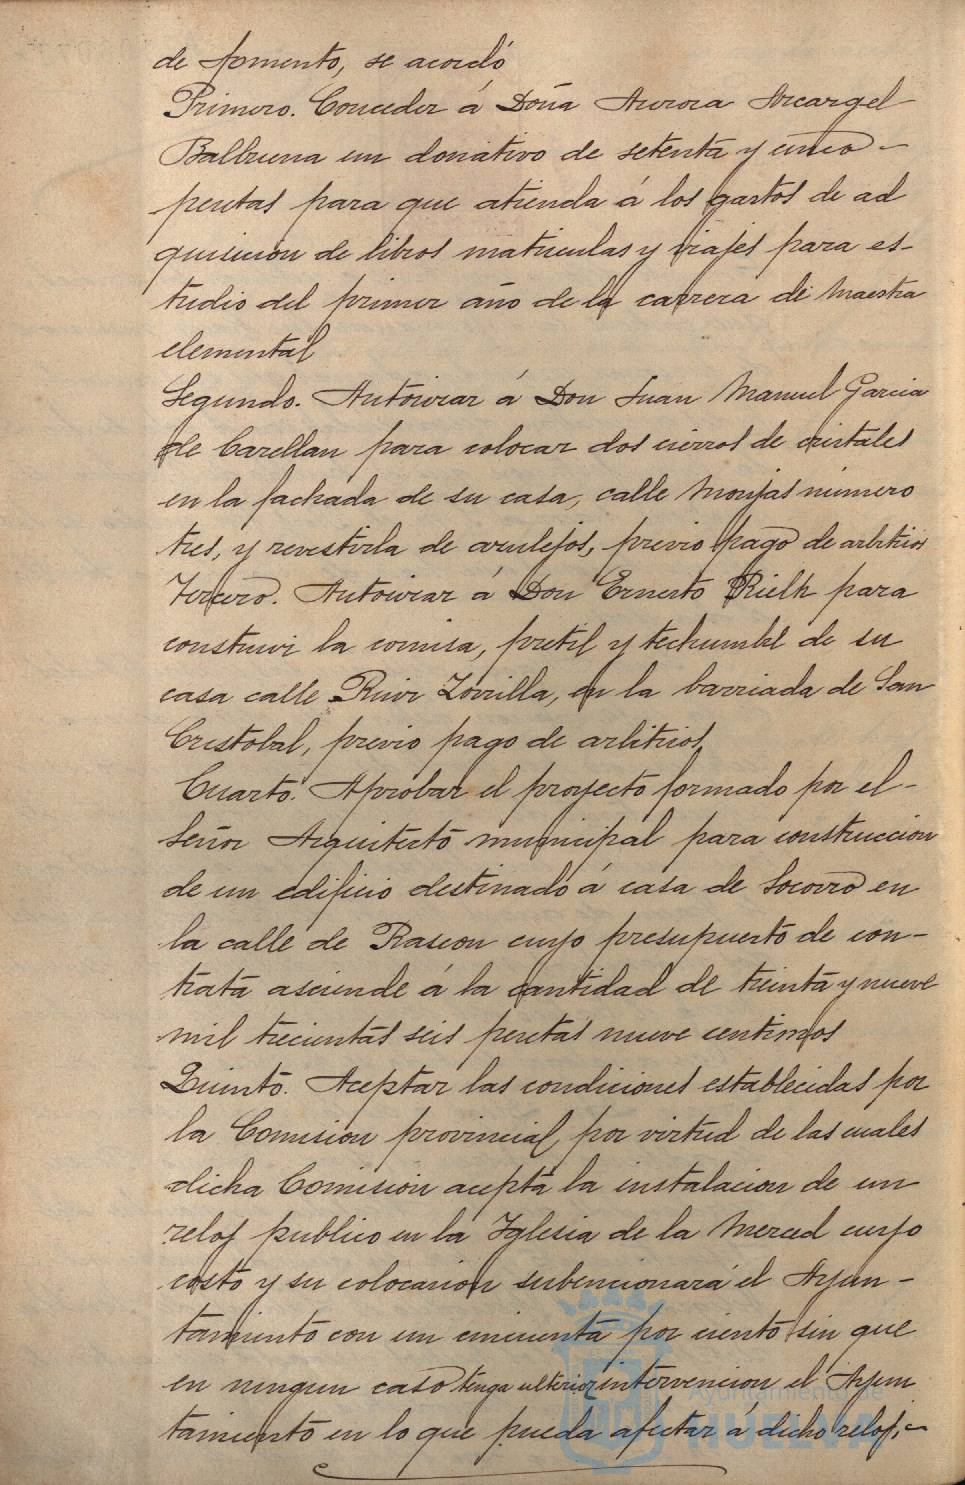 de Fomento, se acordó
Primero. Conceder á Doña Aurora Arcangel
Balbuena un donativo de setenta y cinco
pesetas para que atienda á los gastos de ad
quisicion de libros matriculas y viajes para es-
tudio del primer año de la carrera de Maestra
elemental
Segundo. Autorizar á Don Juan Manuel Garcia
de Carellan para colocar dos cierros de cristales
en la fachada de su casa, calle Monjas número
tres, y revestirla de azulejos, previo pago de arbitrios
Tercero. Autorizar á Don Ernesto Rielh para
construir la cornisa, pretil y techumbre de su
casa calle Ruiz Zorrilla, en la barriada de San
Cristobal, previo pago de arbitrios,
Cuarto. Aprobar el proyecto formado por el-
Señor Arquitecto municipal para construccion
de un edificio destinado á casa de Socorro en
la calle de Rascon cuyo presupuesto de con-
trata asciende á la cantidad de treinta y nueve
mil trecientas seis pesetas nueve centimos
Quinto. Aceptar las condiciones establecidas por
la Comision provincial, por virtud de las cuales
dicha Comision acepta la instalacion de un
reloj publico en la Iglesia de la Merced cuyo
costo y su colocacion subencionará el Ayun-
tamiento con un cincuenta por ciento sin que
en ningun caso tenga ulterior intervencion el Ayun
tamiento en lo que pueda afectar á dicho reloj,-
Ayuntamiento de
HUELVA